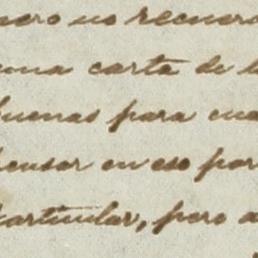 pero no recuerd
una carta de l
buenas para cua
pensar en eso por
particular, pero a